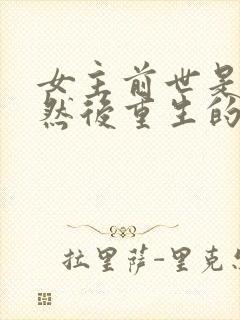 女主前世是
然後重生的
拉里萨-里克